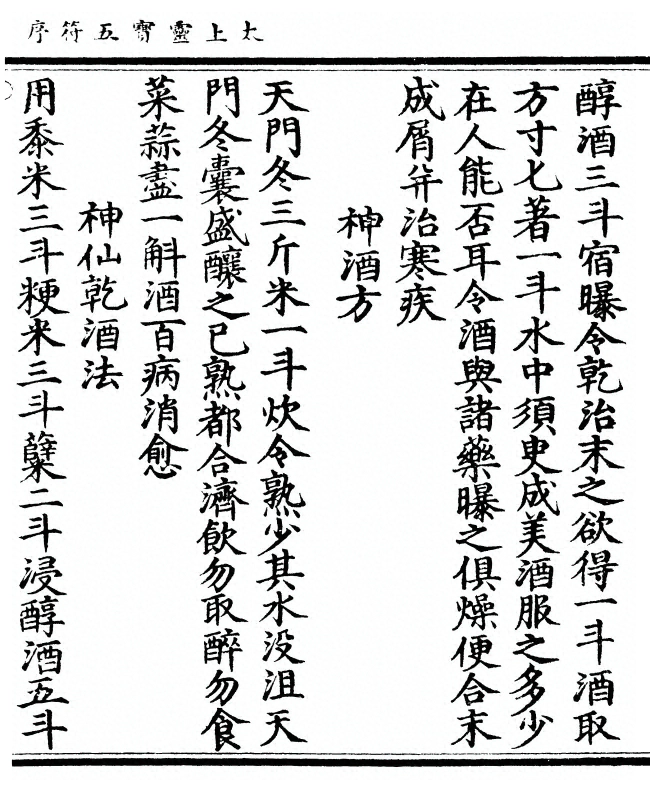 太上靈寶五符序
醇酒三斗宿曝令乾治末之欲得一斗酒取
方寸匕著一斗水中須臾成美酒服之多少
在人能否耳令酒與諸藥曝之俱燥便合末
成屑并治寒疾
神酒方
天門冬三斤米一斗炊令熟少其水沒沮天
門冬囊盛釀之已熟都合濟飲勿取醉勿食
菜蒜盡一斛酒百病消愈
神仙乾酒法
用黍米三斗粳米三斗糵二斗浸醇酒五斗